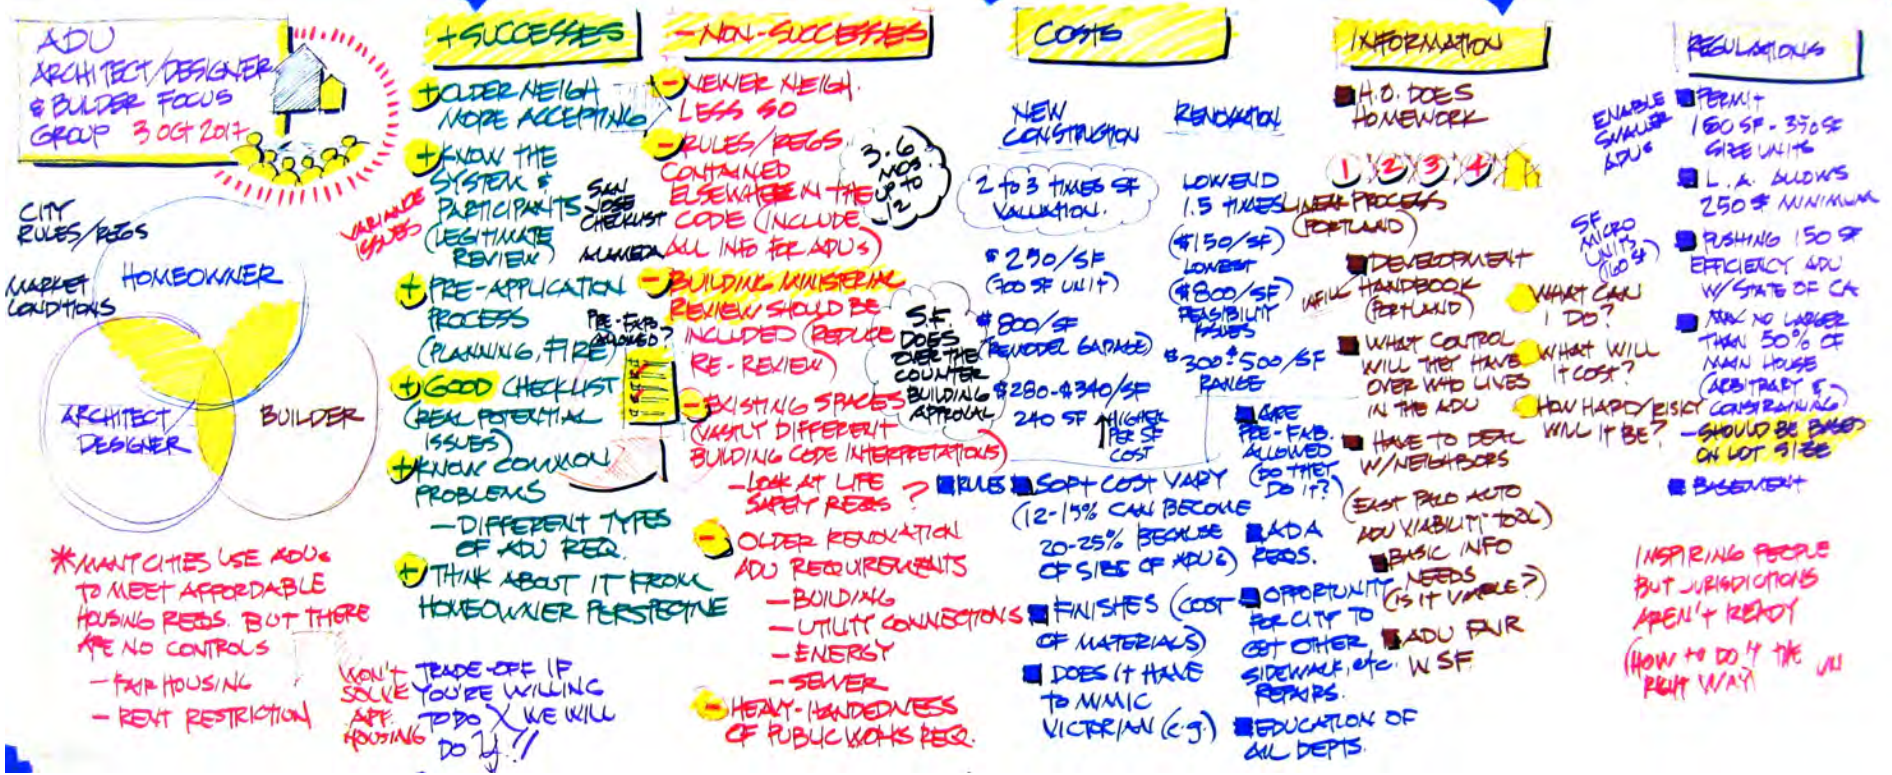 ADU
ARCHITECT/DESIGNER
& BUILDER FOCUS
GROUP 3 OCT 2017
CITY
RULES/REGS
MARKET
CONDITIONS
HOMEOWNER
ARCHITECT
DESIGNER
BUILDER
VARIANCE
ISSUES
* MANY CITIES USE ADUs
TO MEET AFFORDABLE
HOUSING REGS. BUT THERE
ARE NO CONTROLS
- FAIR HOUSING
- RENT RESTRICTION
WON'T
SOLVE
AFF.
HOUSING
TRADE-OFF IF
YOU'RE WILLING
TO DO X WE WILL
DO Y!!
+ SUCCESSES
+ OLDER NEIGH
MORE ACCEPTING
+ KNOW THE
SYSTEM &
PARTICIPANTS
(LEGITIMATE
REVIEW)
SAN
JOSE
CHECKLIST
ALAMEDA
+ PRE-APPLICATION
PROCESS
(PLANNING, FIRE)
PRE-FAB
ALLOWED?
+ GOOD CHECKLIST
(REAL POTENTIAL
ISSUES)
+ KNOW COMMON
PROBLEMS
- DIFFERENT TYPES
OF ADU REQ.
+ THINK ABOUT IT FROM
HOMEOWNER PERSPECTIVE
- NON-SUCCESSES
- NEWER NEIGH.
LESS SO
- RULES/REGS
CONTAINED
ELSEWHERE IN THE
CODE (INCLUDE
ALL INFO FOR ADUs)
3-6
MOS
UP TO
12
- BUILDING MINISTERIAL
REVIEW SHOULD BE
INCLUDED (REDUCE
RE-REVIEW)
S.F.
DOES
OVER THE
COUNTER
BUILDING
APPROVAL
- EXISTING SPACES
(VASTLY DIFFERENT
BUILDING CODE INTERPRETATIONS)
- LOOK AT LIFE
SAFETY REGS ?
- OLDER RENOVATION
ADU REQUIREMENTS
- BUILDING
- UTILITY CONNECTIONS
- ENERGY
- SEWER
- HEAVY-HANDEDNESS
OF PUBLIC WORKS REQ.
COSTS
NEW
CONSTRUCTION
2 TO 3 TIMES SF
VALUATION.
$250/SF
(700 SF UNIT)
$800/SF
(REMODEL GARAGE)
$280-$340/SF
240 SF
HIGHER
PER SF
COST
RENOVATION
LOW END
1.5 TIMES
($150/SF)
LOWEST
($800/SF)
FEASIBILITY
ISSUES
$300-$500/SF
RANGE
RULES
SOFT COST VARY
(12-15% CAN BECOME
20-25% BECAUSE
OF SIZE OF ADUs)
FINISHES (COST
OF MATERIALS)
DOES IT HAVE
TO MIMIC
VICTORIAN (e.g.)
ARE
PRE-FAB.
ALLOWED
(DO THEY
DO IT?)
ADA
REQS.
OPPORTUNITY
FOR CITY TO
GET OTHER
SIDEWALK, etc.
REPAIRS.
EDUCATION OF
ALL DEPTS.
INFORMATION
H.O. DOES
HOMEWORK
1 2 3 4
LINEAR PROCESS
(PORTLAND)
DEVELOPMENT
INFILL HANDBOOK
(PORTLAND)
WHAT CONTROL
WILL THEY HAVE
OVER WHO LIVES
IN THE ADU
HAVE TO DEAL
W/NEIGHBORS
(EAST PALO ALTO
ADU VIABILITY TOOL)
BASIC INFO
NEEDS
(IS IT VIABLE?)
ADU FAIR
W SF
WHAT CAN
I DO?
WHAT WILL
IT COST?
HOW HARD/RISKY
WILL IT BE?
REGULATIONS
ENABLE
SMALLER
ADUs
PERMIT
150 SF - 350 SF
SIZE UNITS
L.A. ALLOWS
250 SF MINIMUM
SF
MICRO
UNITS
(160 SF)
PUSHING 150 SF
EFFICIENCY ADU
W/STATE OF CA
MAX NO LARGER
THAN 50% OF
MAIN HOUSE
(ARBITRARY &
CONSTRAINING)
- SHOULD BE BASED
ON LOT SIZE
BASEMENT
INSPIRING PEOPLE
BUT JURISDICTIONS
AREN'T READY
(HOW TO DO IT THE
RIGHT WAY)